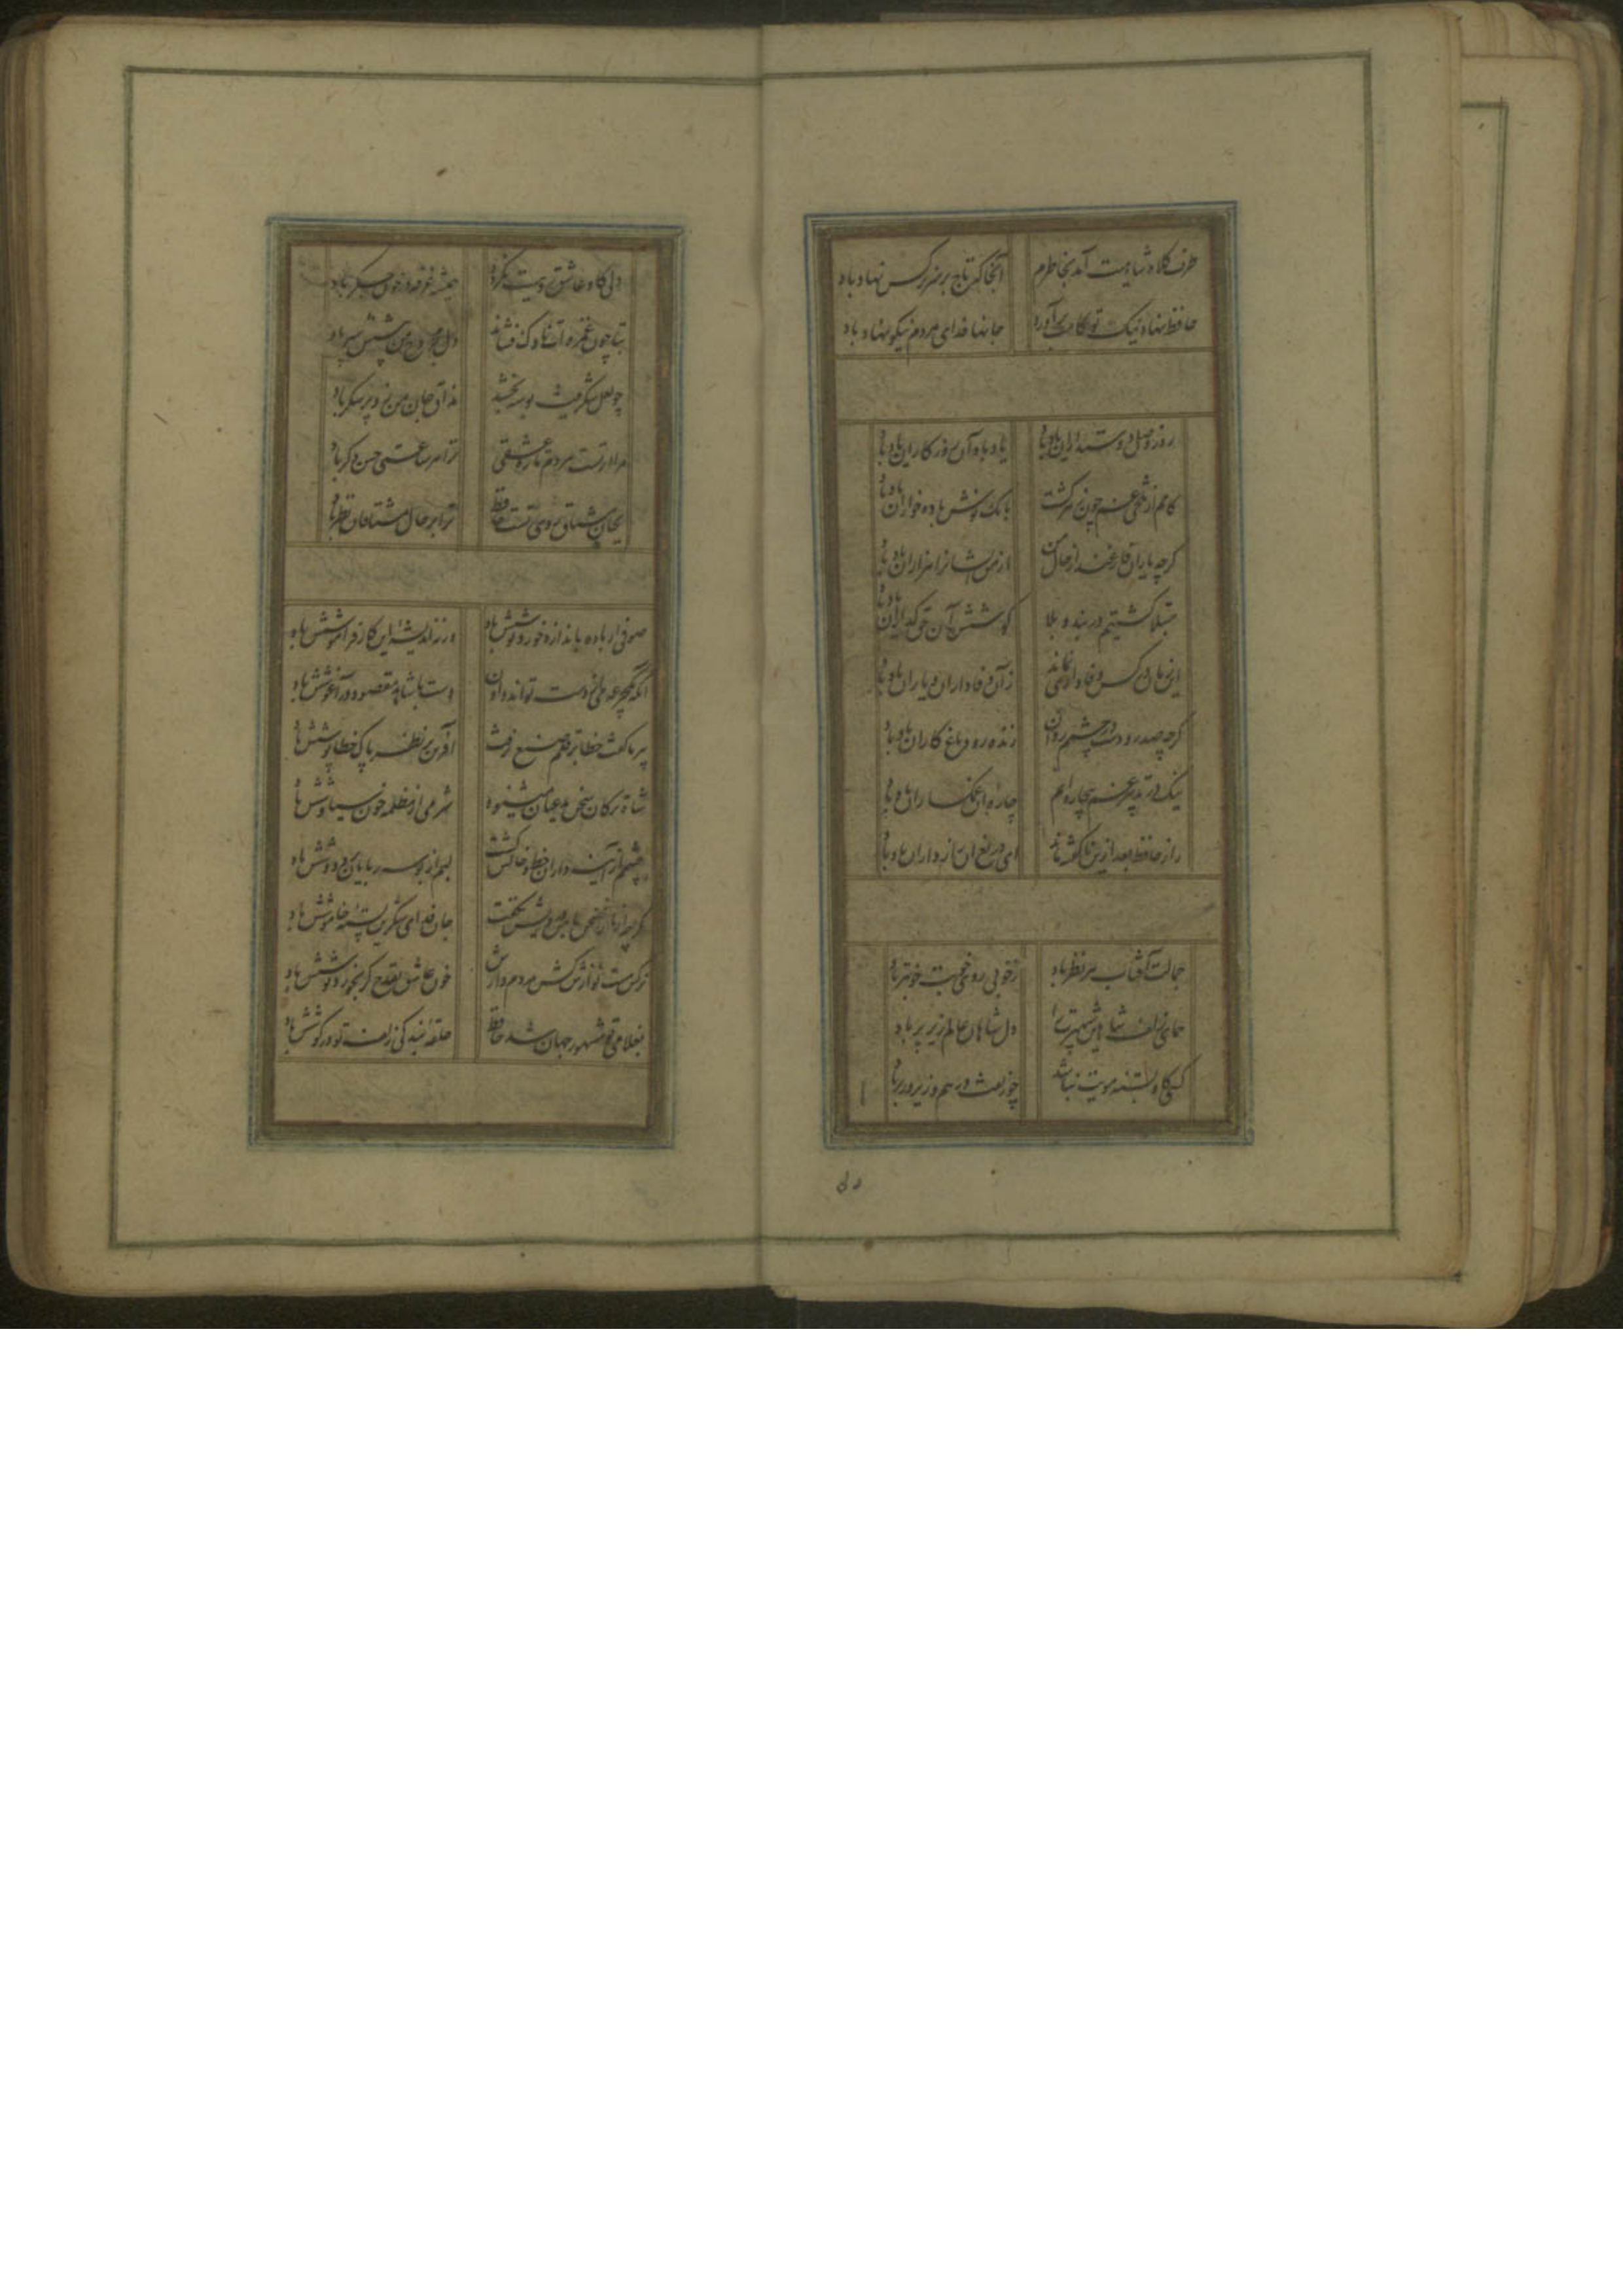 طرف کلاه شاهیت آمد بخاطرم آنجا که تاج بر سر نرگس نهاد باد
حافظ نهاد نیک تو کامت برآورد جانها فدای مردم نیکو نهاد باد
روز وصل دوستداران یاد باد یاد باد آن روزگاران یاد باد
کامم از تلخی غم چون زهر گشت بانک نوش باده خواران یاد باد
کرچه یاران فارغند از حال من از من ایشانرا هزاران یاد باد
مبتلا کشتیم در بند و بلا کوشش آن حق گذاران یاد باد
این زمان در کس وفاداری نماند زان وفاداران و یاران یاد باد
کرچه صد رودست در چشمم روان زنده رود و باغ کاران یاد باد
نیک در تدبیر غم بیچاره ام چاره آن غمکساران یاد باد
راز حافظ بعد ازین ناکفته ماند ای دریغ آن رازداران یاد باد
جمالت آفتاب هر نظر باد ز خوبی روی خوبت خوبتر باد
همای زلف شاهین شهپرت را دل شاهان عالم زیر پر باد
کسی کاو بسته مویت نباشد چو زلفت درهم و زیر و زبر باد
دلی کاو عاشق رویت نگردد همیشه غرقه در خون جگر باد
بتا چون غمزه ات ناوک فشاند دل مجروح من پیشش سپر باد
چو لعل شکرینت بوسه بخشد مذاق جان من زو پر شکر باد
مرا از تست هر دم تازه عشقی ترا هر ساعتی حسن دکر باد
بجان مشتاق روی تست حافظ ترا بر حال مشتاقان نظر باد
صوفی ار باده باندازه خورد نوشش باد ورنه اندیشه این کار فراموشش باد
آنکه یکجرعه می از دست تواند دادن دست با شاهد مقصود در آغوشش باد
پیر ما کفت خطا بر قلم صنع نرفت آفرین بر نظر پاک خطا پوشش باد
شاه ترکان سخن مدعیان میشنود شرمی از مظلمه خون سیاوشش باد
چشمم از آینه داران خط و خالش کشت لبم از بوسه ربایان بر و دوشش باد
کرچه از کبر سخن با من درویش نکفت جان فدای شکرین پسته خاموشش باد
نرکس مست نوازش کن مردم دارش خون عاشق بقدح کر بخورد نوشش باد
بغلامی تو مشهور جهان شد حافظ حلقه بندکی زلف تو در کوشش باد